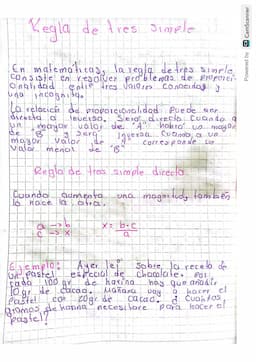 Regla de tres simple
En matemáticas, la regla de tres simple
consiste en resolver problemas de proporci-
onalidad entre tres valores conocidos y
una incognita.
La relación de proporcionalidad puede ser
directa o inversa. Será directa cuando a
un mayor valor de "A" habrá un mayor
de "B" y será inversa cuando a un
mayor valor de "A" corresponde un
valor menor de "B".
Regla de tres simple directa
Cuando aumenta una magnitud, también
lo hace la otra.
a → b
c → x
x = b·c
a
Ejemplo: Ayer leí sobre la receta de
un pastel especial de chocolate. Por
cada 100 gr de harina hay que añadir
10 gr de cacao. Mañana voy a hacer el
pastel con 20gr de cacao. ¿ Cuantos
gramos de harina necesitare para hacer el
pastel?
Powered by CamScanner